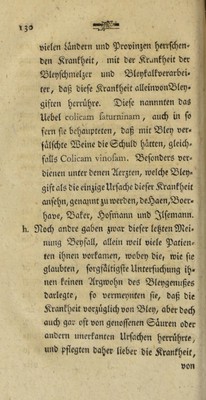 130
vielen Ländern und Provinzen herrschen-
den Krankheit, mit der Krankheit der
Bleyschmelzer und Bleykalkverarbei-
ter, daß diese Krankheit allein von Bley-
giften herrühre. Diese nannnten das
Uebel colicam saturninam, auch in so
fern sie behaupteten, daß mit Bley ver-
fälschte Weine die Schuld hätten, gleich-
falls Colicam vinosam. Besonders ver-
dienen unter denen Aerzten, welche Bley-
gift als die einzige Ursache dieser Krankheit
ansehn, genannt zu werden, de Haen, Boer-
have, Baker, Hofmann und Ilsemann.
h. Noch andre gaben zwar dieser letzten Mei-
nung Beyfall, allein weil viele Patien-
ten ihnen vorkamen, wobey die, wie sie
glaubten, sorgfältigste Untersuchung ih-
nen keinen Argwohn des Bleygenußes
darlegte, so vermeynten sie, daß die
Krankheit vorzüglich von Bley, aber doch
auch gar oft von genossenen Säuren oder
andern unerkanten Ursachen herrührte,
und pflegten daher lieber die Krankheit,
von